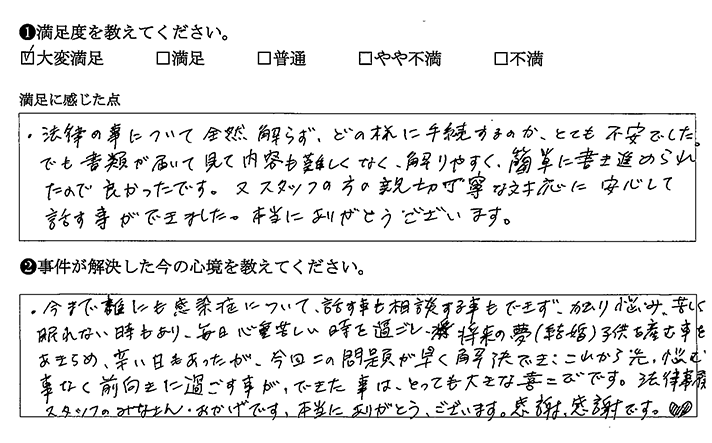 ❶満足度を教えてください。
☑大変満足 □満足 □普通 □やや不満 □不満
満足に感じた点
・法律の事について全然解らず、どの様に手続するのか、とても不安でした。
でも書類が届いて見て内容も難しくなく、解りやすく、簡単に書き進められ
たので良かったです。又スタッフの方の親切丁寧な対応に安心して
話す事ができました。本当にありがとうございます。
❷事件が解決した今の心境を教えてください。
・今まで誰にも感染症について、話す事も相談する事もできず、かなり悩み、苦しく
眠れない時もあり、毎日心重苦しい時を過ごし、将来の夢(結婚)子供を産む事を
あきらめ、辛い日もあったが、今回この問題が早く解決でき、これから先、悩む
事なく前向きに過ごす事が、できた事は、とっても大きな喜こびです。法律事務
スタッフのみなさん・おかげです、本当にありがとう、ございます。感謝、感謝です。